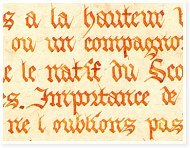 s a la hauteur
ou un compagnon
e le natif du Sco
s. Importance de
ne l oublions pas